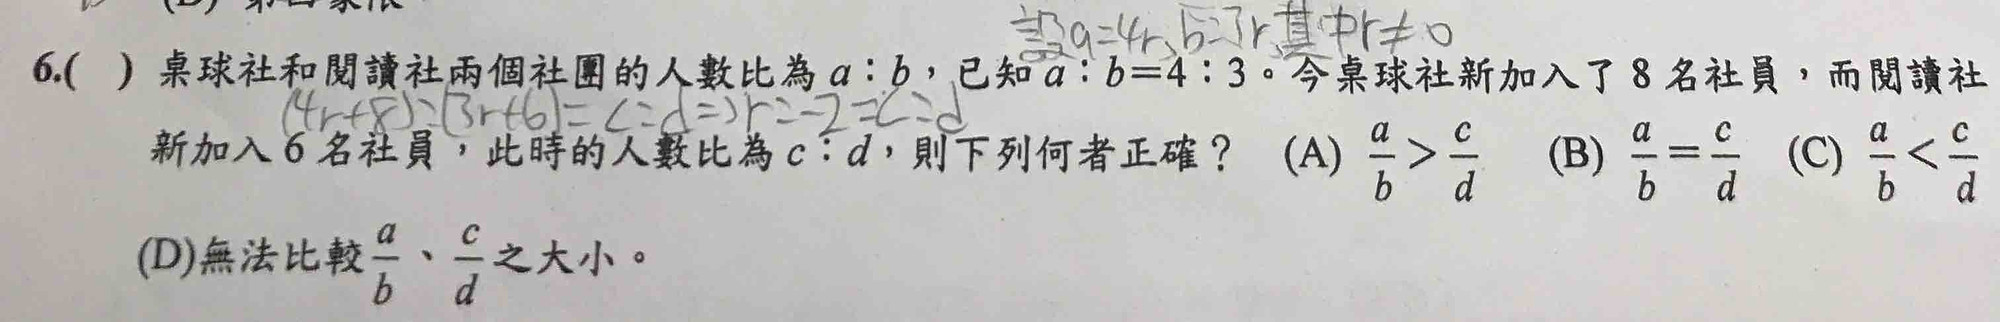 設a=4r、b=3r,其中r≠0
6.( ) 桌球社和閱讀社兩個社團的人數比為a:b,已知a:b=4:3。今桌球社新加入了8名社員,而閱讀社
(4r+8):(3r+6)=c:d⇒r=-2=c=d
新加入6名社員,此時的人數比為c:d,則下列何者正確? (A) a/b > c/d (B) a/b = c/d (C) a/b < c/d
(D)無法比較 a/b、c/d 之大小。